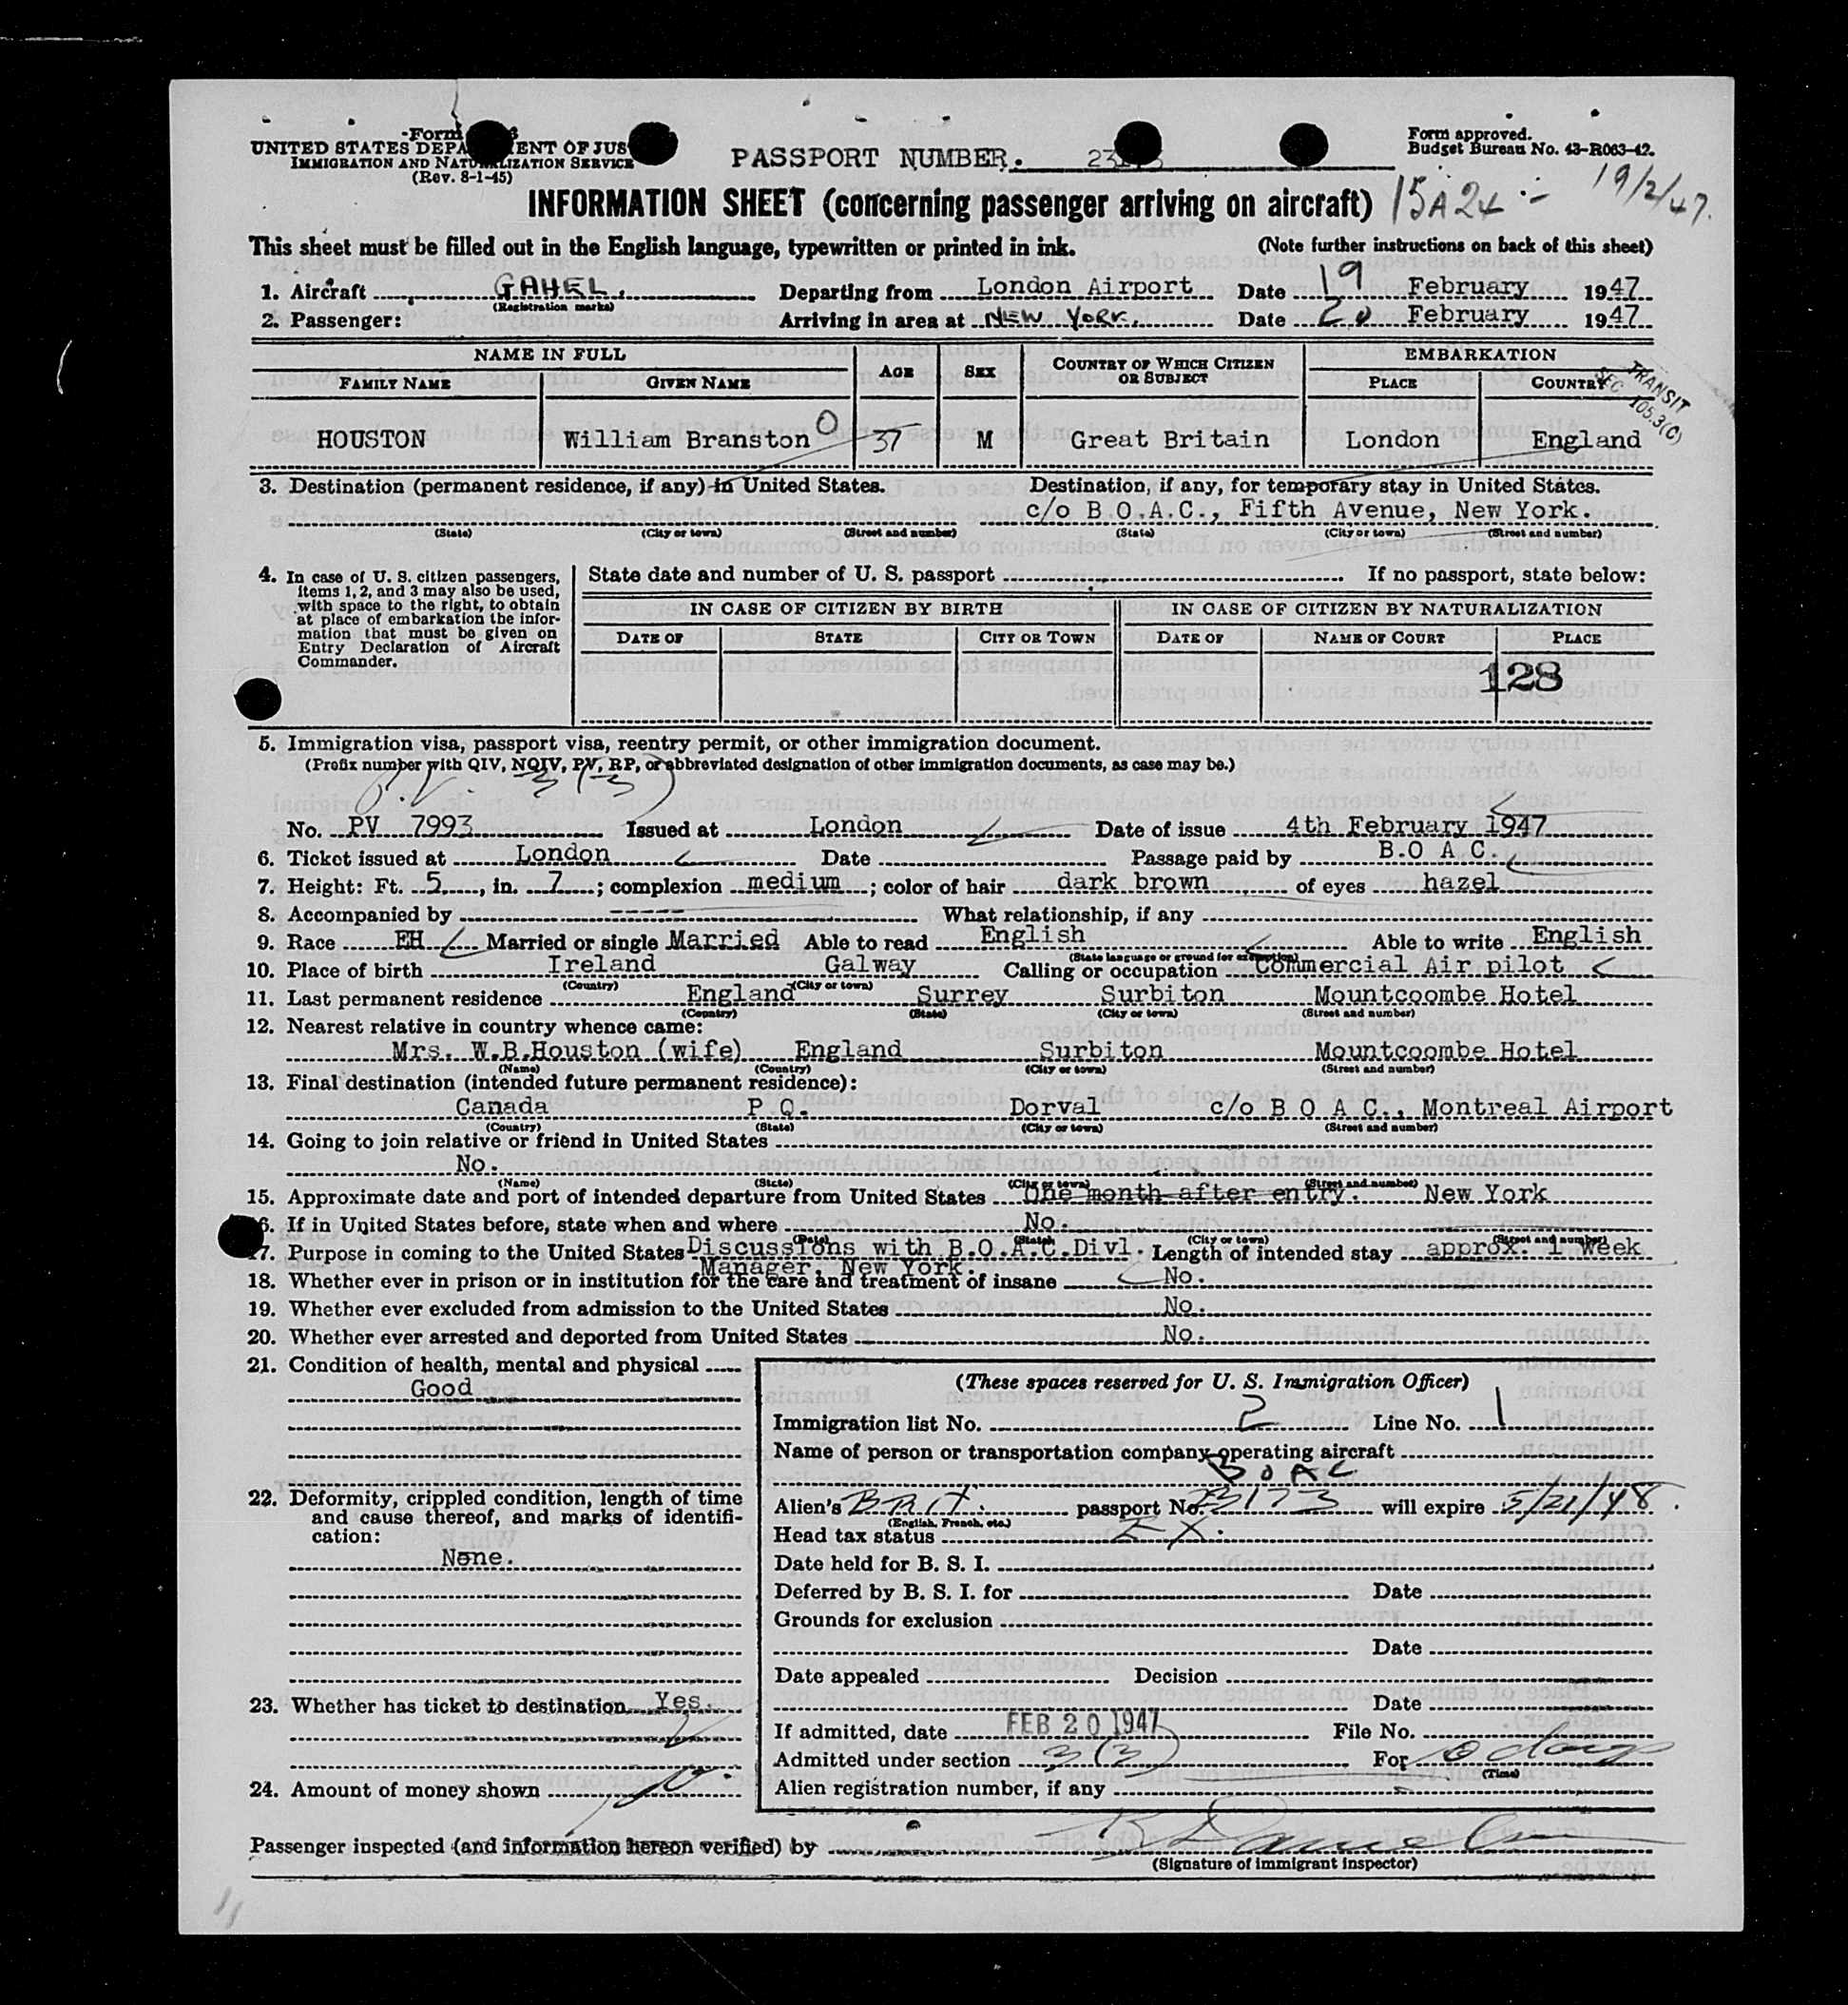 Form
UNITED STATES DEPA ENT OF JUS
IMMIGRATION AND NATURALIZATION SERVICE
(Rev. 8-1-45)
PASSPORT NUMBER.
Form approved.
Budget Bureau No. 43-R063-42.
INFORMATION SHEET (concerning passenger arriving on aircraft) 15A24 :- 19/2/47.
This sheet must be filled out in the English language, typewritten or printed in ink. (Note further instructions on back of this sheet)
1. Aircraft GAHEL. Departing from London Airport Date 19 February 1947
(Registration marks)
2. Passenger: Arriving in area at NEW YORK. Date 20 February 1947
NAME IN FULL AGE SEX COUNTRY OF WHICH CITIZEN OR SUBJECT EMBARKATION
FAMILY NAME GIVEN NAME PLACE COUNTRY
TRANSIT
SEC. 105.3(C)
HOUSTON William Branston 37 M Great Britain London England
3. Destination (permanent residence, if any) in United States. Destination, if any, for temporary stay in United States.
c/o B.O.A.C., Fifth Avenue, New York.
(State) (City or town) (Street and number) (State) (City or town) (Street and number)
4. In case of U. S. citizen passengers, items 1, 2, and 3 may also be used, with space to the right, to obtain at place of embarkation the information that must be given on Entry Declaration of Aircraft Commander.
State date and number of U. S. passport If no passport, state below:
IN CASE OF CITIZEN BY BIRTH IN CASE OF CITIZEN BY NATURALIZATION
DATE OF STATE CITY OR TOWN DATE OF NAME OF COURT PLACE
128
5. Immigration visa, passport visa, reentry permit, or other immigration document.
(Prefix number with QIV, NQIV, PV, RP, or abbreviated designation of other immigration documents, as case may be.)
P.V. 3(3)
No. PV 7993 Issued at London Date of issue 4th February 1947
6. Ticket issued at London Date Passage paid by B.O A C.
7. Height: Ft. 5, in. 7; complexion medium; color of hair dark brown of eyes hazel
8. Accompanied by What relationship, if any
9. Race EH Married or single Married Able to read English Able to write English
(State language or ground for exemption)
10. Place of birth Ireland Galway Calling or occupation Commercial Air pilot
(Country) (City or town)
11. Last permanent residence England Surrey Surbiton Mountcoombe Hotel
(Country) (State) (City or town) (Street and number)
12. Nearest relative in country whence came:
Mrs. W.B.Houston (wife) England Surbiton Mountcoombe Hotel
(Name) (Country) (City or town) (Street and number)
13. Final destination (intended future permanent residence):
Canada P Q. Dorval c/o B O A C., Montreal Airport
(Country) (State) (City or town) (Street and number)
14. Going to join relative or friend in United States
No.
(Name) (State) (City or town) (Street and number)
15. Approximate date and port of intended departure from United States One month after entry. New York
6. If in United States before, state when and where No.
(Date) (State) (City or town) (Street and number)
17. Purpose in coming to the United States Discussions with B.O.A.C.Divl. Length of intended stay approx. 1 week
Manager, New York.
18. Whether ever in prison or in institution for the care and treatment of insane No.
19. Whether ever excluded from admission to the United States No.
20. Whether ever arrested and deported from United States No.
21. Condition of health, mental and physical
Good
22. Deformity, crippled condition, length of time and cause thereof, and marks of identification:
None.
23. Whether has ticket to destination Yes.
24. Amount of money shown
(These spaces reserved for U. S. Immigration Officer)
Immigration list No. 2 Line No. 1
Name of person or transportation company operating aircraft
BOAC
Alien's Brit. passport No. 23173 will expire 5/21/48.
(English, French, etc.)
Head tax status EX.
Date held for B. S. I.
Deferred by B. S. I. for Date
Grounds for exclusion
Date
Date appealed Decision
Date
If admitted, date FEB 20 1947 File No.
Admitted under section 3(3) For
(Time)
Alien registration number, if any
Passenger inspected (and information hereon verified) by
(Signature of immigrant inspector)